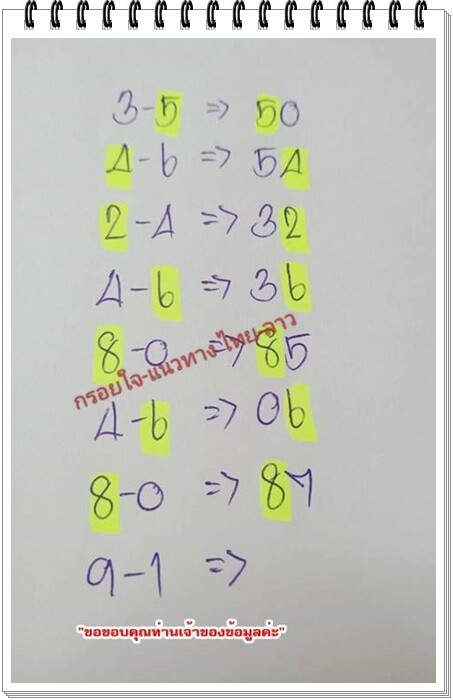 3-5 => 50
4-6 => 54
2-4 => 32
4-6 => 36
8-0 => 85
กรอยใจ-แนวทาง-ไทย-ลาว
4-6 => 06
8-0 => 87
9-1 =>
"ขอขอบคุณท่านเจ้าของข้อมูลค่ะ"